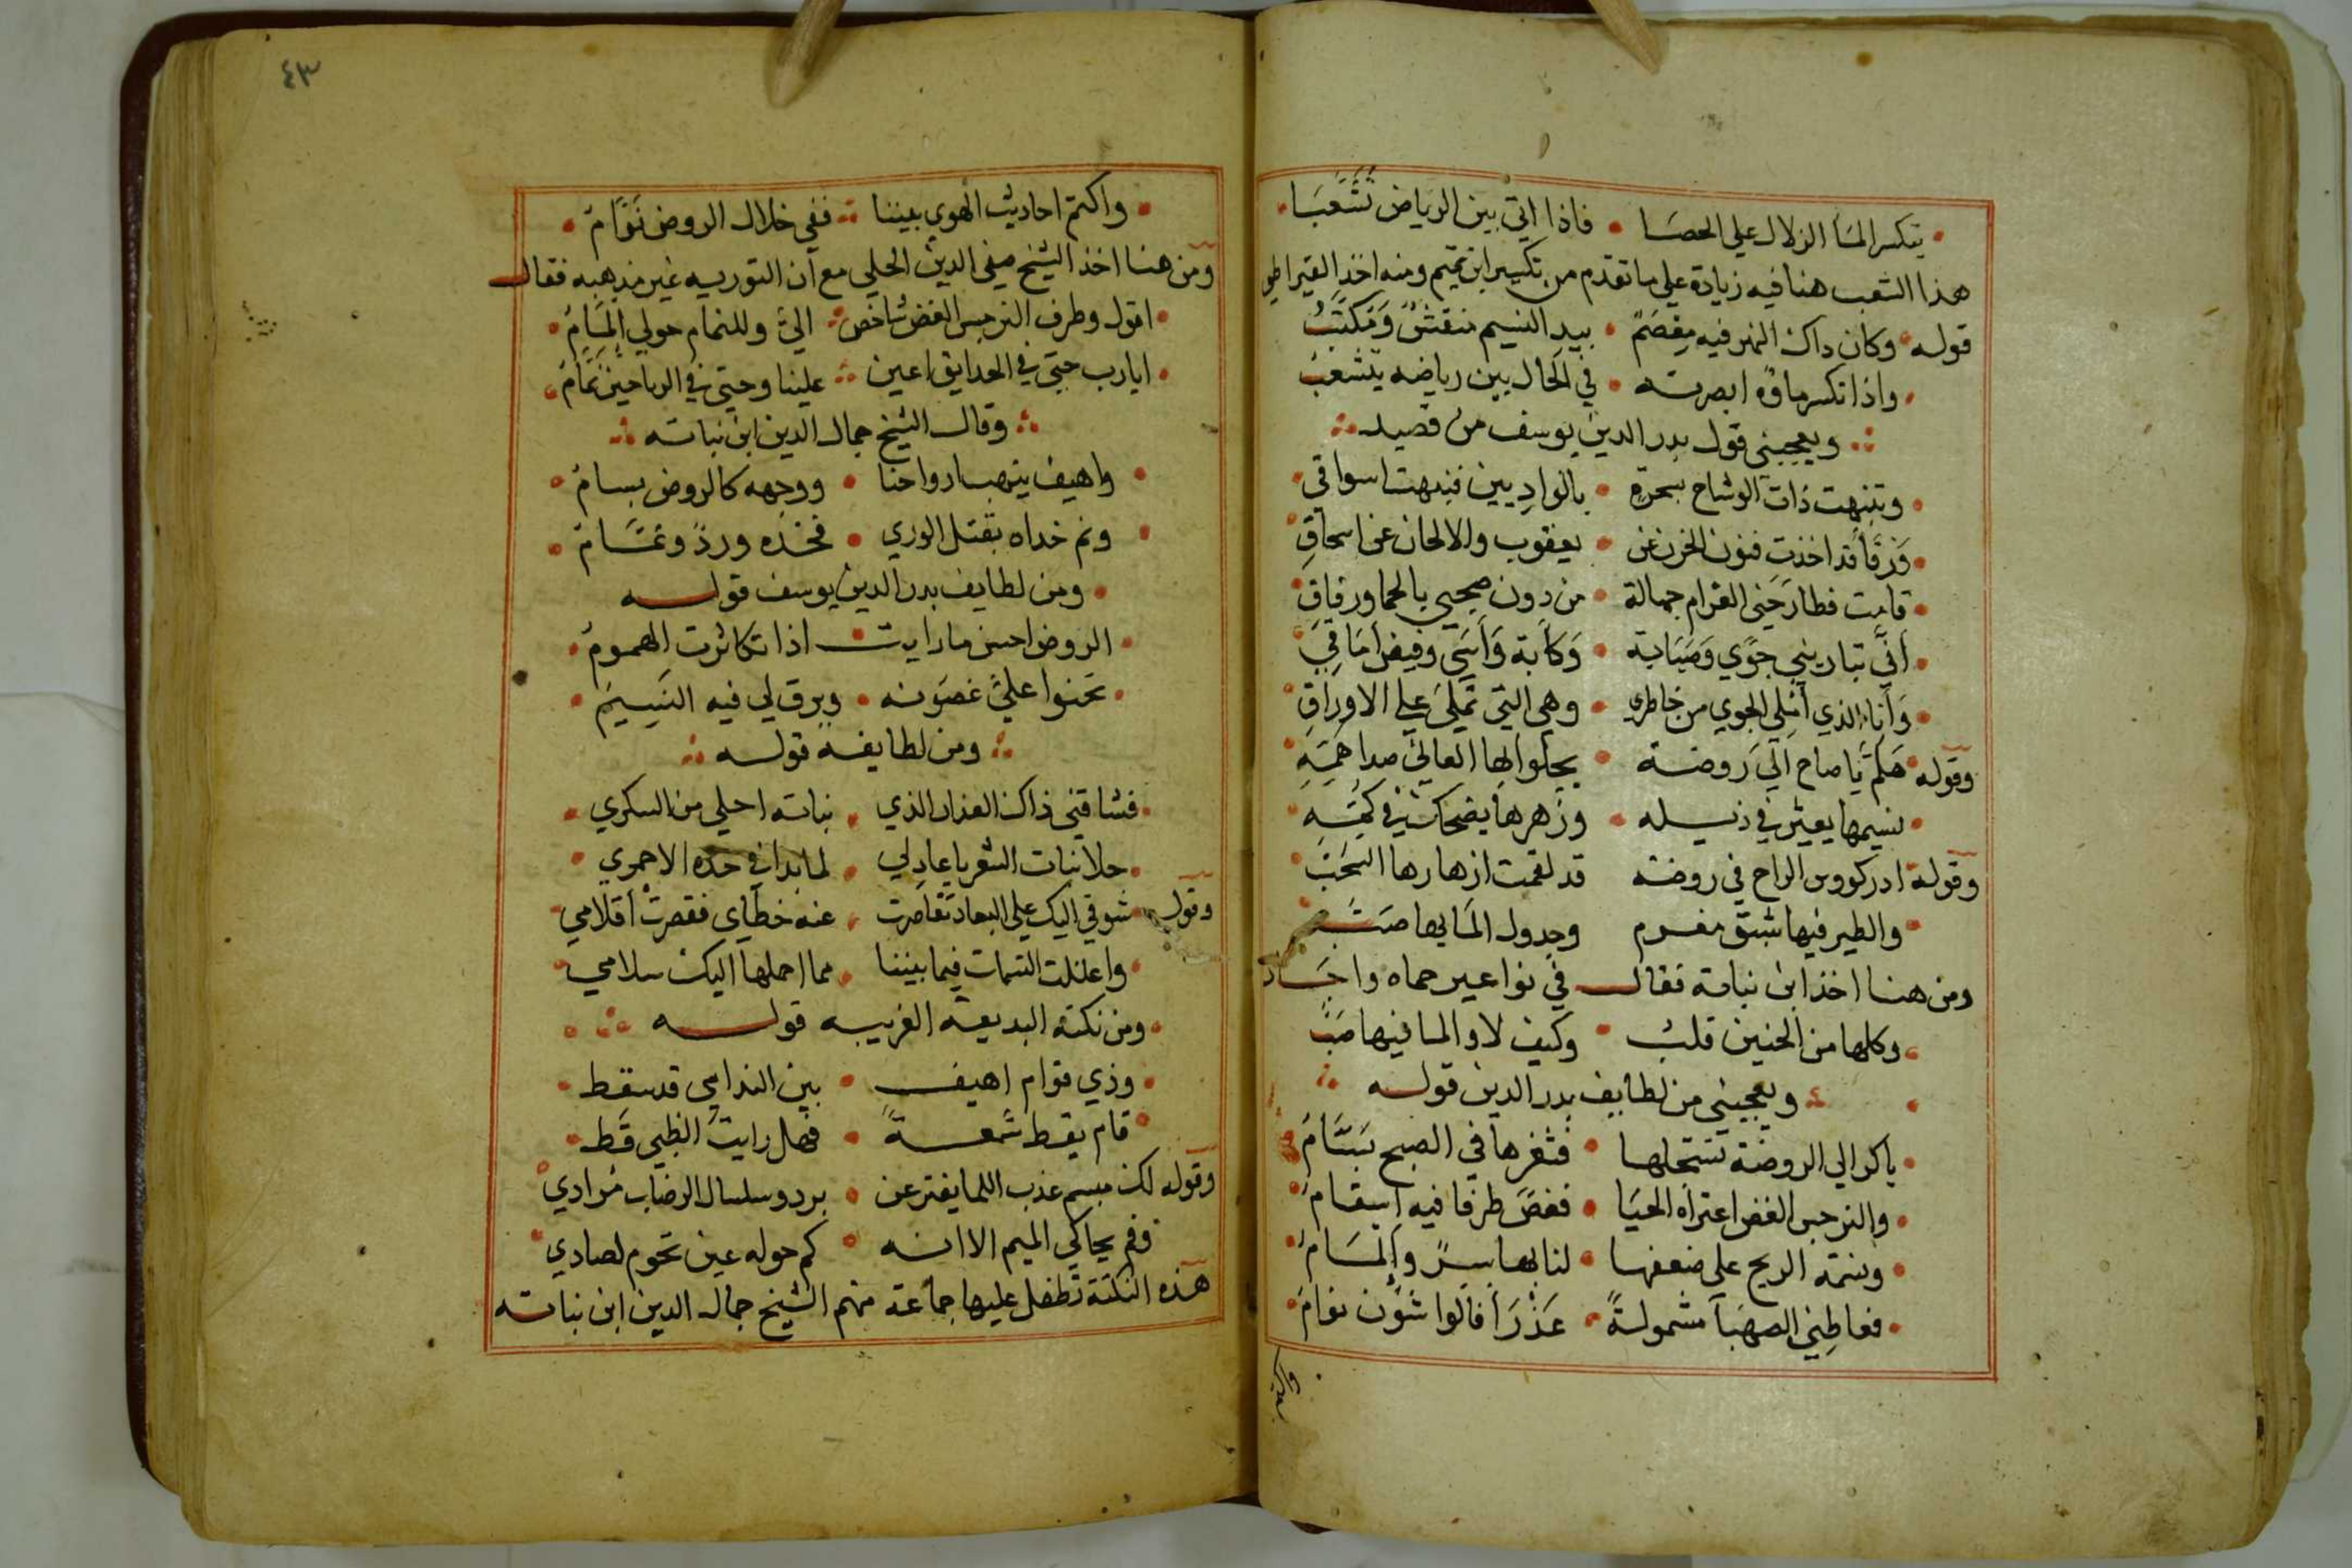 يتكسر الماء الزلال على الحصا • فاذا اتى بين الرياض تشعبا
هذا الشعب هنا فيه زيادة على ما تقدم من تكسير ابن تميم ومنه اخذ القيراطي
قوله وكان ذاك النهر فيه معصم • بيد النسيم منقش ومكتب
واذا تكسر ماؤه ابصرته • في الحال بين رياضه يتشعب
ويعجبني قول بدر الدين يوسف من قصيد
وتنبهت ذات الوشاح بسحرة • بالواديين فنبهت اسواقي
ورقا قد اخذت فنون الحزن عن • يعقوب والالحان عن اسحاق
قامت فطارحني الغرام جهالة • من دون صحبي بالحما ورفاق
انى تباريني جوي وصبابة • وكابة واسى وفيض اماقي
وانا الذي املي الجوي من خاطري • وهي التي تملي على الاوراق
وقوله هلم يا صاح الى روضة • يجلوا بها العاني صدا همه
نسيمها يعثر في ذيله • وزهرها يضحك في كمه
وقوله ادر كووس الراح في روضة قد نمقت ازهارها السحب
والطير فيها شيق مغرم وجدول الما بها صب
ومن هنا اخذ ابن نباتة فقال في نواعير حماه واجاد
وكلها من الحنين قلب • وكيف لا و الما فيها صب
ويعجبني من لطايف بدر الدين قوله
باكر الى الروضة تستجلها • فثغرها في الصبح بسام
والنرجس الغض اعتراه الحيا • فغض طرفا فيه اسقام
ونسمة الريح على ضعفها • لنا بها سر والمام
فعاطني الصهبا مشمولة • عذرا فالواشون نوام
واكتم
٤٣
واكتم احاديث الهوي بيننا ففي خلال الروض نمام
ومن هنا اخذ الشيخ صفي الدين الحلي مع ان التوريه غير مذهبه فقال
اقول وطرف النرجس الغض شاخص الي وللنمام حولي المام
ايا رب حتى في الحدايق اعين علينا وحتى في الرياحين نمام
وقال الشيخ جمال الدين ابن نباته
واهيف ينهب ارواحنا • ووجهه كالروض بسام
ونم خداه بقتل الوري • فخده ورد ونمام
ومن لطايف بدر الدين يوسف قوله
الروض احسن ما رايت اذا تكاثرت الهموم
تحنوا علي غصونه • ويرق لي فيه النسيم
ومن لطايفه قوله
فشاقني ذاك العذار الذي نباته احلى من السكري
حلا نبات الشعر يا عاذلي لما بدا في خده الاحمري
وقوله شوقي اليك على البعاد تقاصرت عنه خطاي فقصرت اقلامي
واعتلت النسمات فيما بيننا مما احملها اليك سلامي
ومن نكته البديعة الغريبه قوله
وذي قوام اهيف • بين الندامي قد سقط
قام يقط شمعة • فهل رايت الظبي قط
وقوله لك مبسم عذب اللما يفتر عن • برد وسلسال الرضاب مرادي
وفم يحاكي الميم الا انه • كم حوله عين تحوم لصادي
هذه النكتة تطفل عليها جماعة منهم الشيخ جمال الدين ابن نباته